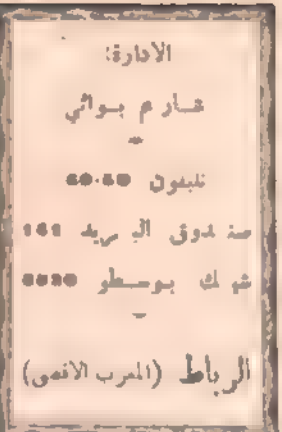 الادارة:
شارع بواتي
تليفون
صندوق البريد
شيك بوسطو
الرباط (المغرب الاقصى)